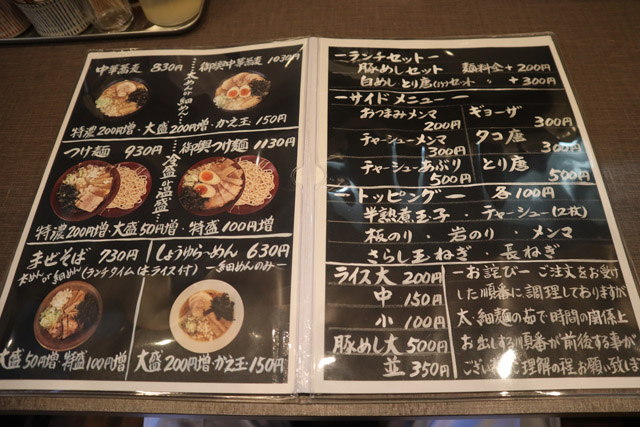 中華蕎麦 830円
御輿中華蕎麦 1030円
太めん or 細めん
特濃200円増・大盛200円増・かえ玉150円
つけ麺 930円
御輿つけ麺 1130円
冷盛 or 温盛
特濃200円増・大盛50円増・特盛100円増
まぜそば 730円
太めん or 細めん (ランチタイムはライス付)
しょうゆら〜めん 630円
ー細めんのみー
大盛50円増・特盛100円増
大盛200円増・かえ玉150円
ーランチセットー
豚めしセット 麺料金+200円
白めし とり唐(1ヶ)セット 〃 +300円
ーサイドメニューー
おつまみメンマ 200円
チャーシューメンマ 300円
チャーシューあぶり 500円
ギョーザ 300円
タコ唐 300円
とり唐 500円
ートッピングー 各100円
半熟煮玉子・チャーシュー(2枚)
板のり・岩のり・メンマ
さらし玉ねぎ・長ねぎ
ライス大 200円
中 150円
小 100円
豚めし大 500円
並 350円
ーお詫びー ご注文をお受け
した順番に調理しておりますが
太・細麺の茹で時間の関係上
お出しする順番が前後する事が
ございます ご理解の程お願い致します